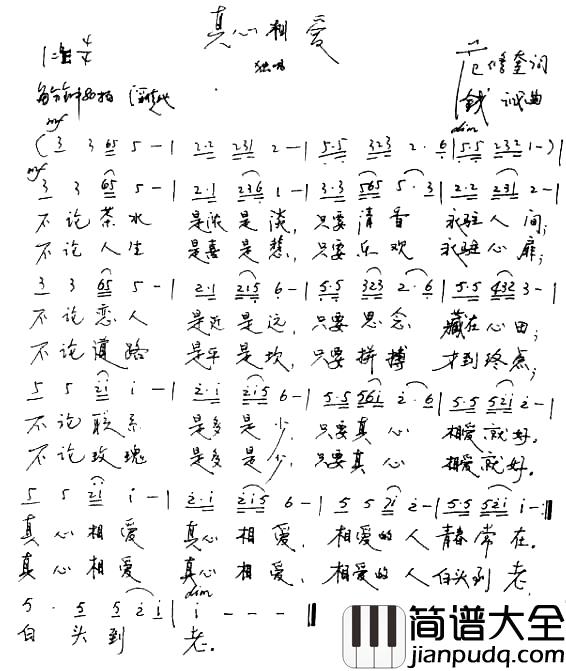 真心相爱
独唱
1=♭E 4/4
范修奎词
钱诚曲
mf dim
( 3 3 65 5 - | 2·2 231 2 - | 5·5 323 2·6 | 5·5 232 1 - ) |
mf
3 3 65 5 - | 2·1 236 1 - | 3·3 565 5·3 | 2·2 231 2 - |
不论茶水 是浓是淡，只要清香 永驻人间；
不论人生 是喜是愁，只要乐观 永驻心扉；
3 3 65 5 - | 2·1 215 6 - | 5·5 323 2·6 | 5·5 432 3 - |
不论恋人 是近是远，只要思念 藏在心田；
不论道路 是平是坎，只要拼搏 才到终点；
5 5 2i i - | 2·i 2i5 6 - | 5·5 56i 2·6 | 5·5 52i 2 - |
不论联系 是多是少，只要真心 相爱就好。
不论玫瑰 是多是少，只要真心 相爱就好。
5 5 2i i - | 2·i 2i5 6 - | 5 5 2i 2 - | 5·5 52i i - :||
真心相爱 真心相爱，相爱的人青春常在。
真心相爱 真心相爱，相爱的人白头到老，
dim
5· 5 5 2 i | i - - - ||
白头到老。
简谱大全
jianpudq.com